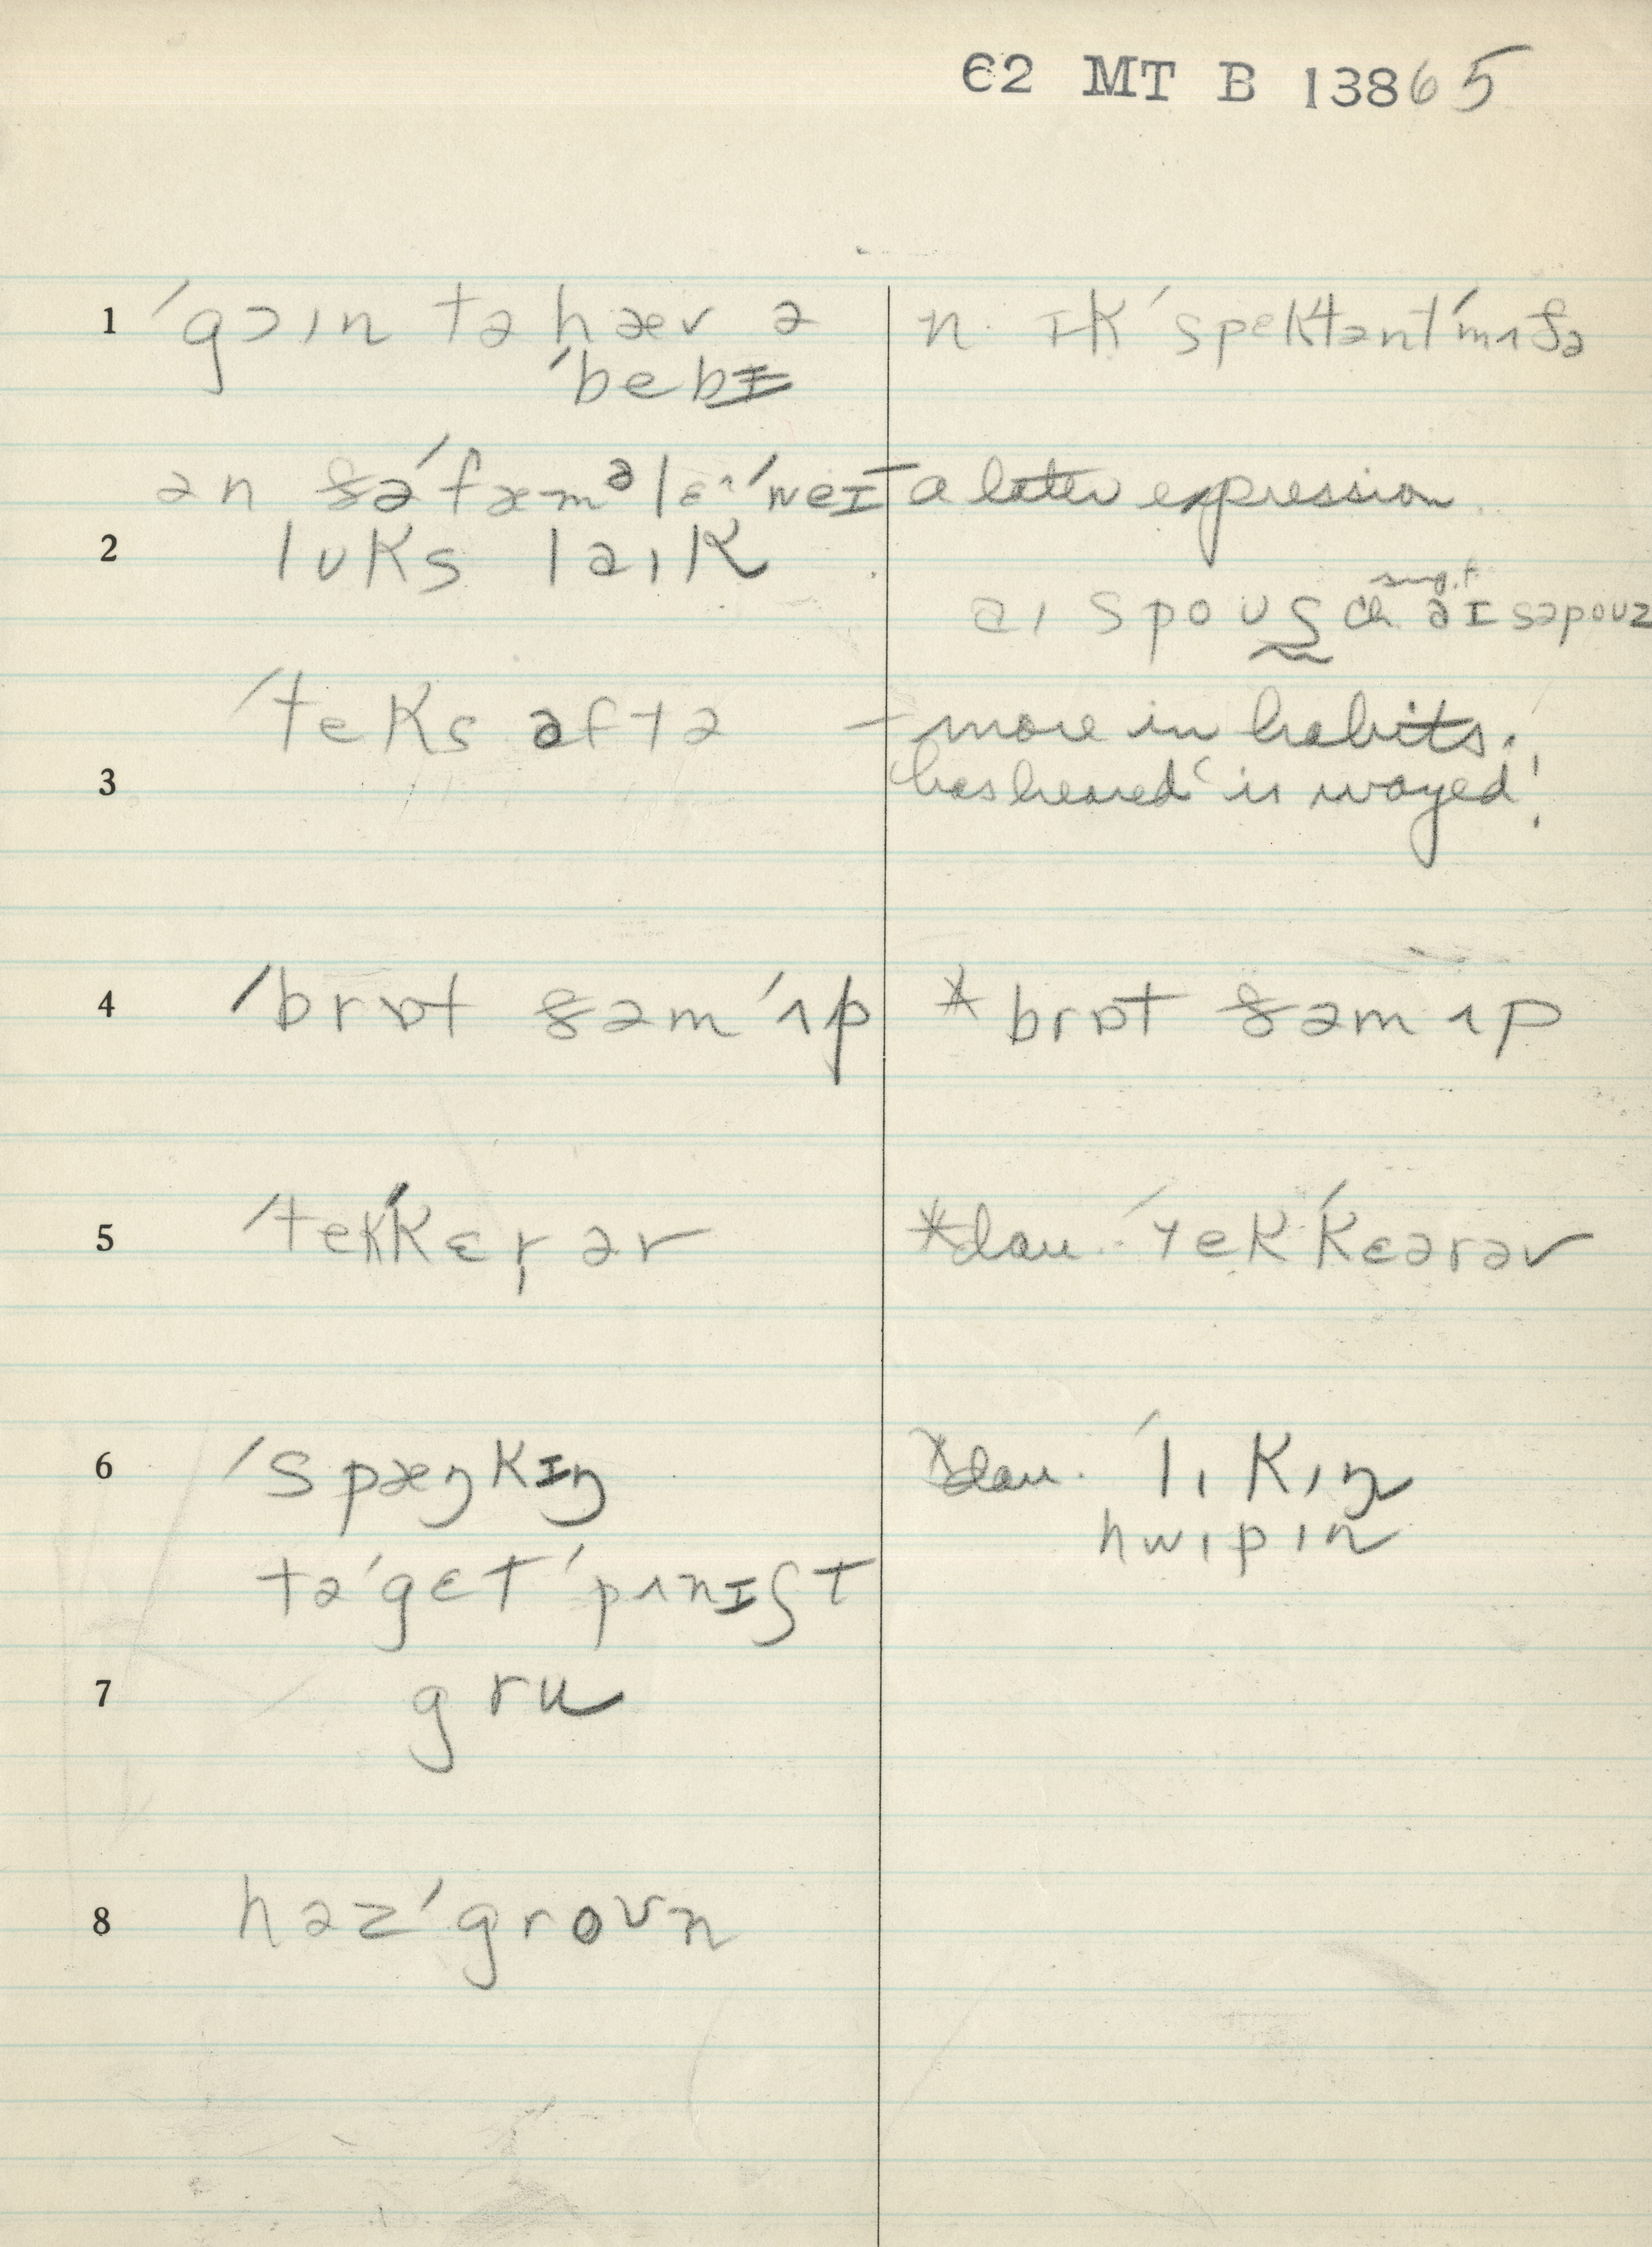 62 MT B 13865
1 ˈgɔɪn tə hæv ə n. ɪkˈspektəntˈmʌðə
ˈbebɪ
ən ðəˈfæməlɛ ˈweɪ a later expression
2 lʊks laɪk
sug.t
aɪ spoʊs ch. aɪ səpoʊz
ˈteks aftə – more in habits.
3 has heard 'is wayed'!
4 ˈbrɒt ðəm ˈʌp * brɒt ðəm ʌp
5 ˈtekˈkɛr̩ əv *dau. ˈtekˈkɛərəv
6 ˈspæŋkɪŋ *dau. ˈlɪkɪŋ
hwɪpɪn
təˈgɛt ˈpʌnɪʃt
7 gru
8 həzˈgroʊn